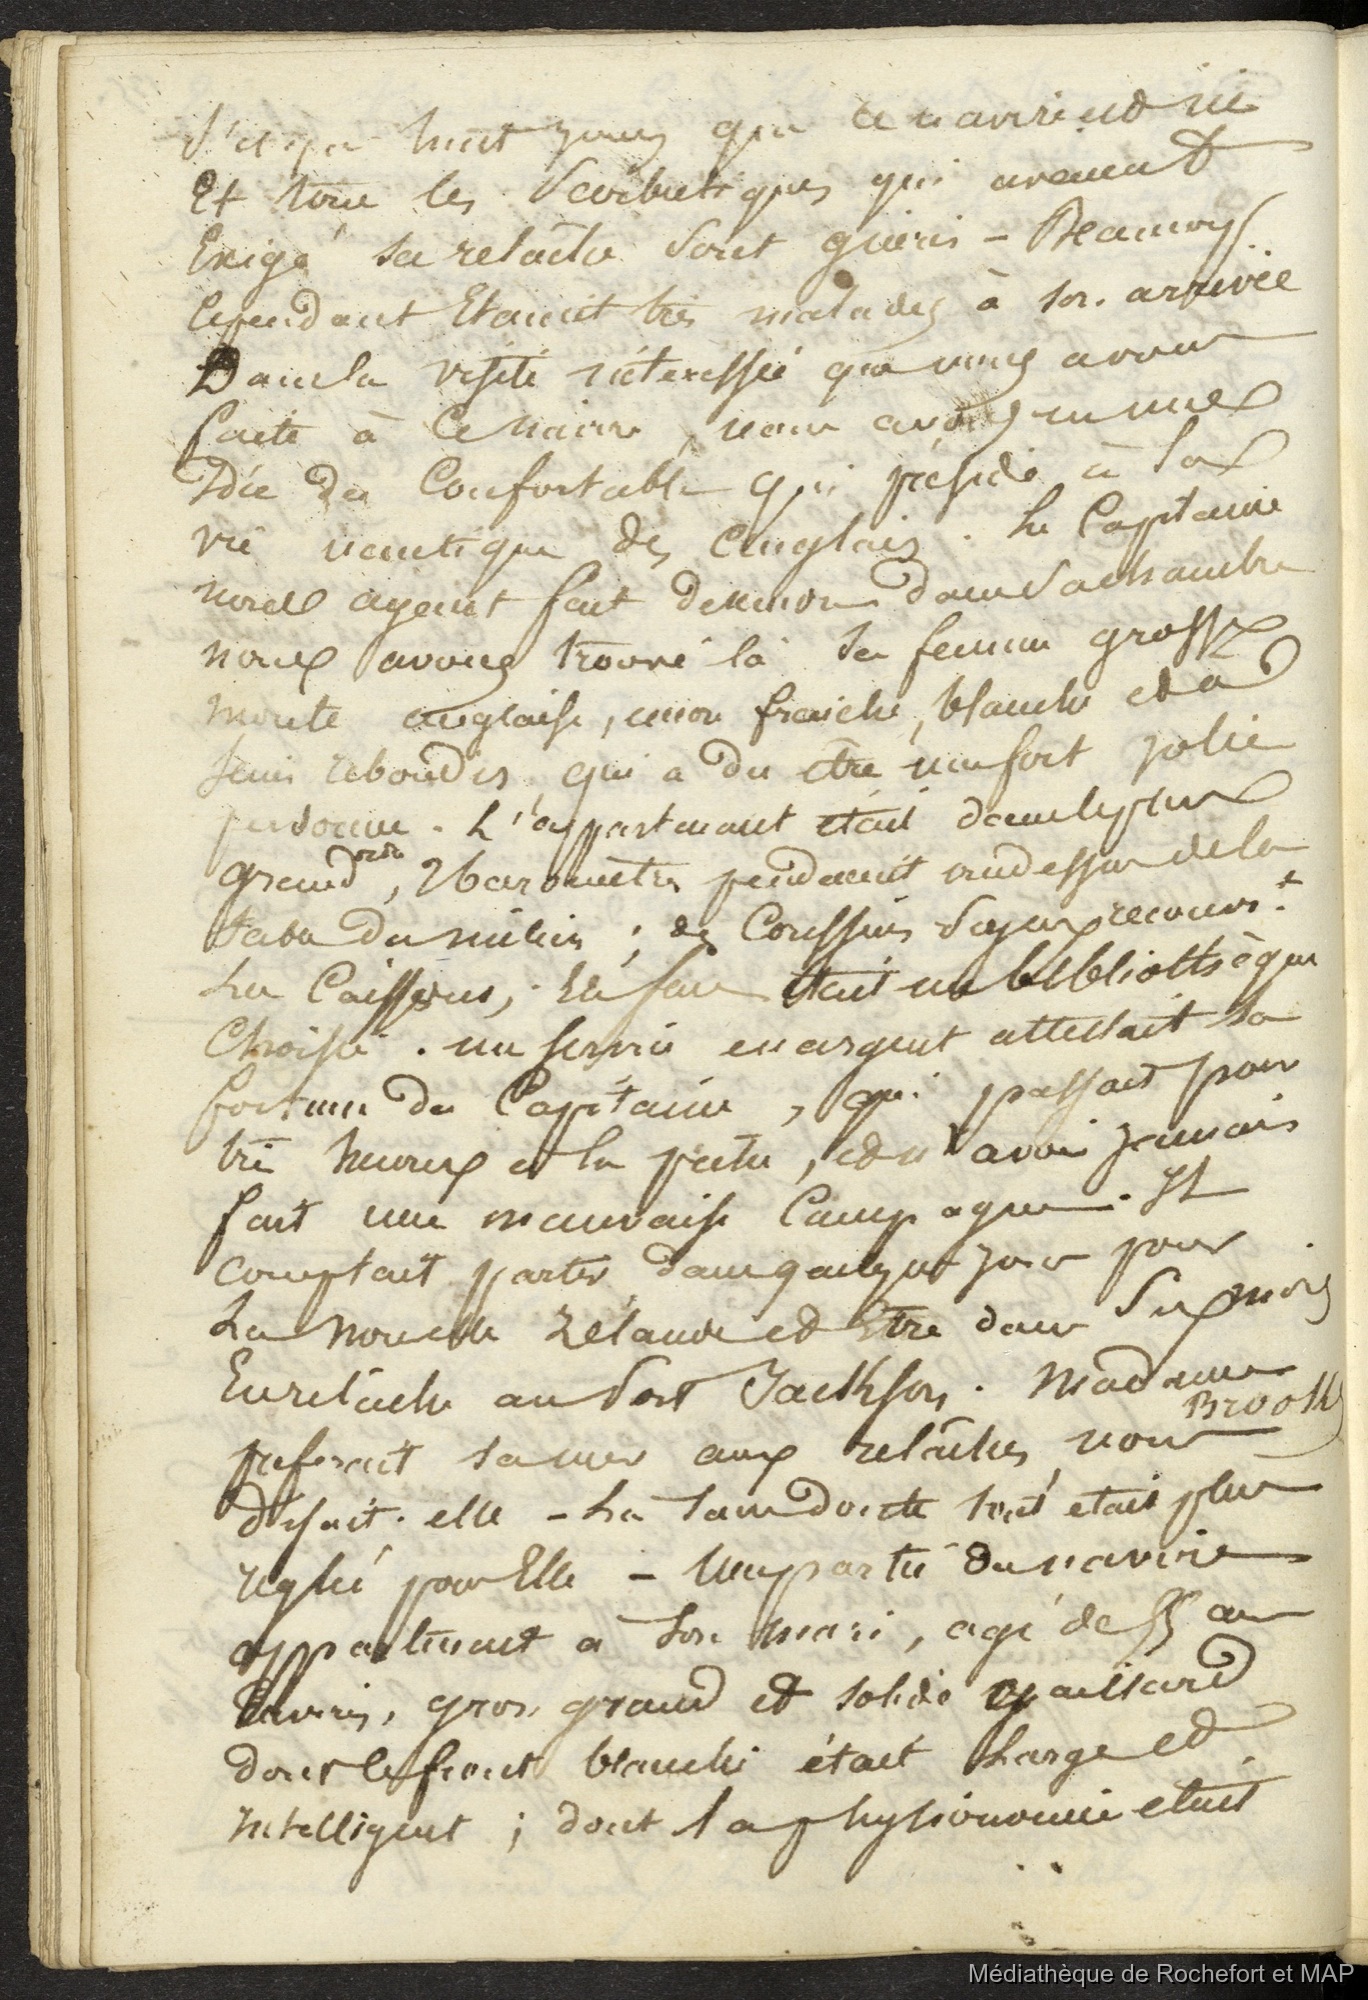 n'est que huit jours que ce navire est ici
Et tous les Scorbutiques qui avaient
Exigé sa relâche sont guéris - Beaucoup
Cependant Etaient très malades à son arrivée
Dans la visite intéressée que nous avons
faite à ce navire, nous avons eu une
Idée du Confortable qui préside à la
vie nautique des Anglais. Le Capitaine
nous ayant fait descendre dans sa chambre
nous avons trouvé là sa femme grosse
anglaise, encor fraiche, blanche et à
seins rebondis, qui a du être une fort jolie
personne. L'appartement était dans le plus
grand , 2 baromètres pendaient au dessus de la
table du milieu ; des Coussins soyeux recouvr.t
Les Caissons ; En face était une bibliothèque
Choisie. un service en argent attestait la
fortune du Capitaine, qui passait pour
très heureux à la pêche, et n'avoir jamais
fait une mauvaise Campagne. Il
comptait partir dans quelques jours pour
La nouvelle Zélande et Etre dans six mois
En relâche au Port Jackson. Madame
Brooks
préferait la mer aux relâches, nous
disait-elle - La Santé était plus
réglée pour Elle - Une partie du navire
appartenait à son mari, agé de 55 ans
Environ, gros, grand et solide gaillard
dont le front blanchi était Large et
intelligent ; dont la physionomie était
Médiathèque de Rochefort et MAP